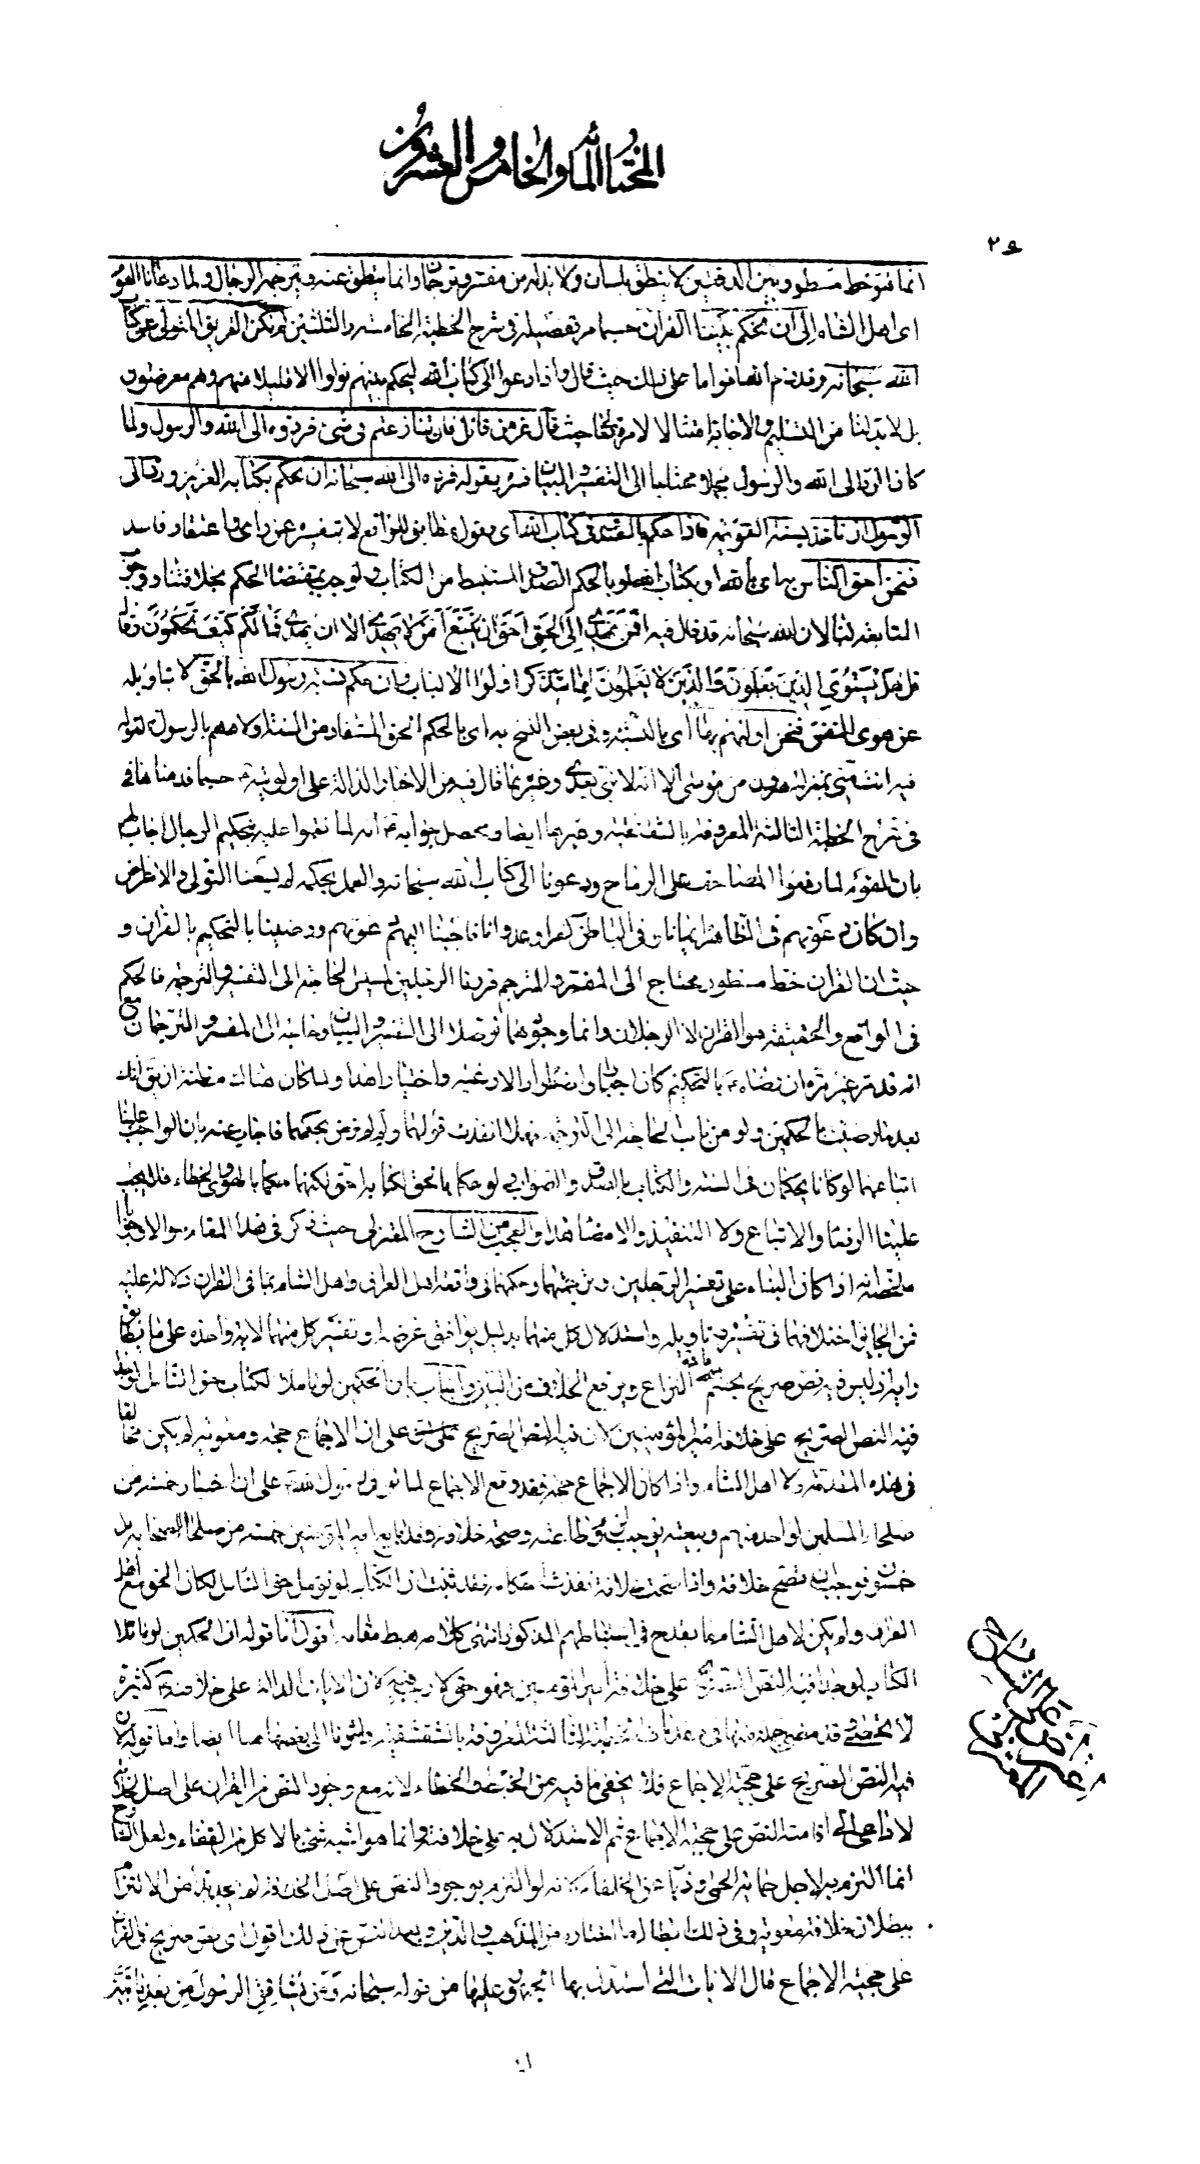 المختار المأة والخامس والعشرون
انما هو خط مسطور بين الدفتين لا ينطق بلسان ولا بد له من مفسر وترجمان وانما ينطق عنه ويترجمه الرجال ولما دعانا القوم
اى اهل الشام الى ان نحكم بيننا القران حسبما مر تفصيله فى شرح الخطبة الخامسة والثلثين لم نكن الفريق المتولى عن كتاب
الله سبحانه وقد ذم الله اقواما على ذلك حيث قال واذا دعوا الى كتاب الله ليحكم بينهم تولوا الا قليلا منهم وهم معرضون
بل لا بد لنا من التسليم والاجابة امتثالا لامره تعالى حيث قال عز من قائل فان تنازعتم فى شىء فردوه الى الله والرسول ولما
كان الرد الى الله والرسول مجملا محتاجا الى التفسير والبيان فسره بقوله فرده الى الله سبحانه ان نحكم بكتابه العزيز ورده الى
الرسول ان ناخذ بسنته القويمة فاذا حكم بالصدق فى كتاب الله اى بقول مطابق للواقع لا بتفسيره عن راى واعتقاد فاسد
فنحن احق الناس به اى بالله او بكتاب الله او بالحكم الصدق المستنبط من الكتاب لوجوب مقتضا الحكم بخلافتنا ووجوب
المتابعة لنا لان الله سبحانه قد قال فيه افمن يهدى الى الحق احق ان يتبع امن لا يهدى الا ان يهدى فما لكم كيف تحكمون وقال
قل هل يستوى الذين يعلمون والذين لا يعلمون انما يتذكر اولوا الالباب وان حكم بسنة رسول الله بالحق لا بتاويله
عن هوى النفس فنحن اولهم بها اى بالسنة وفى بعض النسخ به اى بالحكم الحق المستفاد من السنة او لاهم بالرسول لقوله
فيه انت منى بمنزلة هرون من موسى الا انه لا نبى بعدى وغيره مما قال فيه من الاخبار الدالة على اولويته حسبما قدمناها فى
فى شرح الخطبة الثالثة المعروفة بالشقشقية وغيرها ايضا ومحصل جوابه انه لما نقموا عليه بتحكيم الرجال اجاب لهم
بان القوم لما رفعوا المصاحف على الرماح ودعونا الى كتاب الله سبحانه والعمل بحكمه لم يسعنا التولى والاعراض
وان كان دعوتهم فى الظاهر ايمانا وفى الباطن كفرا وعدوانا فاجبنا اليهم دعوتهم ورضينا بالتحكيم بالقران و
حيث ان القران خط مسطور محتاج الى المفسر والمترجم قررنا الرجلين لمسيس الحاجة الى التفسير والترجمة فالحكم
فى الواقع والحقيقة هو القران لا الرجلان وانما وجودهما توصلا الى التفسير والبيان وحاجة الى المفسر والترجمان مع
انه قد مر غير مرة ان رضاه بالتحكيم كان اجبارا واضطرارا لا رغبة واختيارا هذا ولما كان هنالك مظنة ان يقال انك
بعد ما رضيت بالحكمين ولو من باب الحاجة الى الترجمة فهلا انفذت قولهما ولم لم ترض بحكمهما فاجاب عنه بان الواجب علينا
اتباعهما لو كانا يحكمان فى السنة والكتاب بالصدق والصواب لو حكما بالحق لكنا به احق لكنهما حكما بالهوى والخطاء فلا يجب
علينا الرضا والاتباع ولا التنفيذ والامضاء هذا والعجب من الشارح المعتزلى حيث ذكر فى هذا المقام سؤالا وجوابا
ملخصه انه اذا كان البناء على تفسير الرجلين وترجمتهما وحكمهما فى واقعة اهل العراق واهل الشام بما فى القران دلالة عليه
فمن الجايز اختلافهما فى تفسيره وتاويله واستدلال كل منهما بدليل يوافق غرضه او تفسير كل منهما لاية واحدة على ما يطابق
رايه اذ ليس فيه نص صريح يحسم النزاع ويرفع الخلاف من البين واجاب بان الحكمين لو تاملا الكتاب حق التامل لوجدا
فيه النص الصريح على خلافة امير المؤمنين لان فيه النص الصريح على ان الاجماع حجة ومعوية لم يكن مخالفا
فى هذه المقدمة ولا اهل الشام واذا كان الاجماع حجة فقد وقع الاجماع لما توفى رسول الله على ان اختيار خمسة من
صلحاء المسلمين لواحد منهم وبيعته توجب لزوم طاعته وصحة خلافته وقد بايع امير المؤمنين خمسة من صلحاء الصحابة بل
خمسون فوجب ان تصح خلافته واذا صحت خلافته نفذت احكامه فقد ثبت ان الكتاب لو تؤمل حق التامل لكان الحق مع اهل
العراق ولم يكن لاهل الشام مما يقدح فى استنباطهم المذكور انتهى كلامه هبط مقامه اقول اما قوله ان الحكمين لو تاملا
الكتاب لوجدا فيه النص الصريح على خلافة امير المؤمنين فهو حق لا ريب فيه لان الايات الدالة على خلافته كثيرة
لا تحصى وقد مضى جملة منها فى مقدمات الخطبة الثالثة المعروفة بالشقشقية واشرنا الى بعضها هنا ايضا واما قوله ان
فيه النص الصريح على حجية الاجماع فلا يخفى ما فيه من الخبط والخطاء لانه مع وجود النص من القران على اصل الخلافة
لا داعى الى اقامة النص على حجية الاجماع ثم الاستدلال به على خلافته وانما هو اشبه شىء بالاكل من القفاء ولعل الشارح
انما التزم به لاجل حماية الحمى وذبا عن الخلفاء لانه لو التزم بوجود النص على اصل الخلافة لم يجد بدا من الالتزام
ببطلان خلافة وفى ذلك ابطال ما اختاره من المذهب والدين وبعد الغض عن ذلك اقول اى نص صريح فى القران
على حجية الاجماع فان الايات التى استدلت بها الجمهور عليها من قوله سبحانه ومن يشاقق الرسول من بعد ما تبين
اعتراض على الشارح المعتزلى